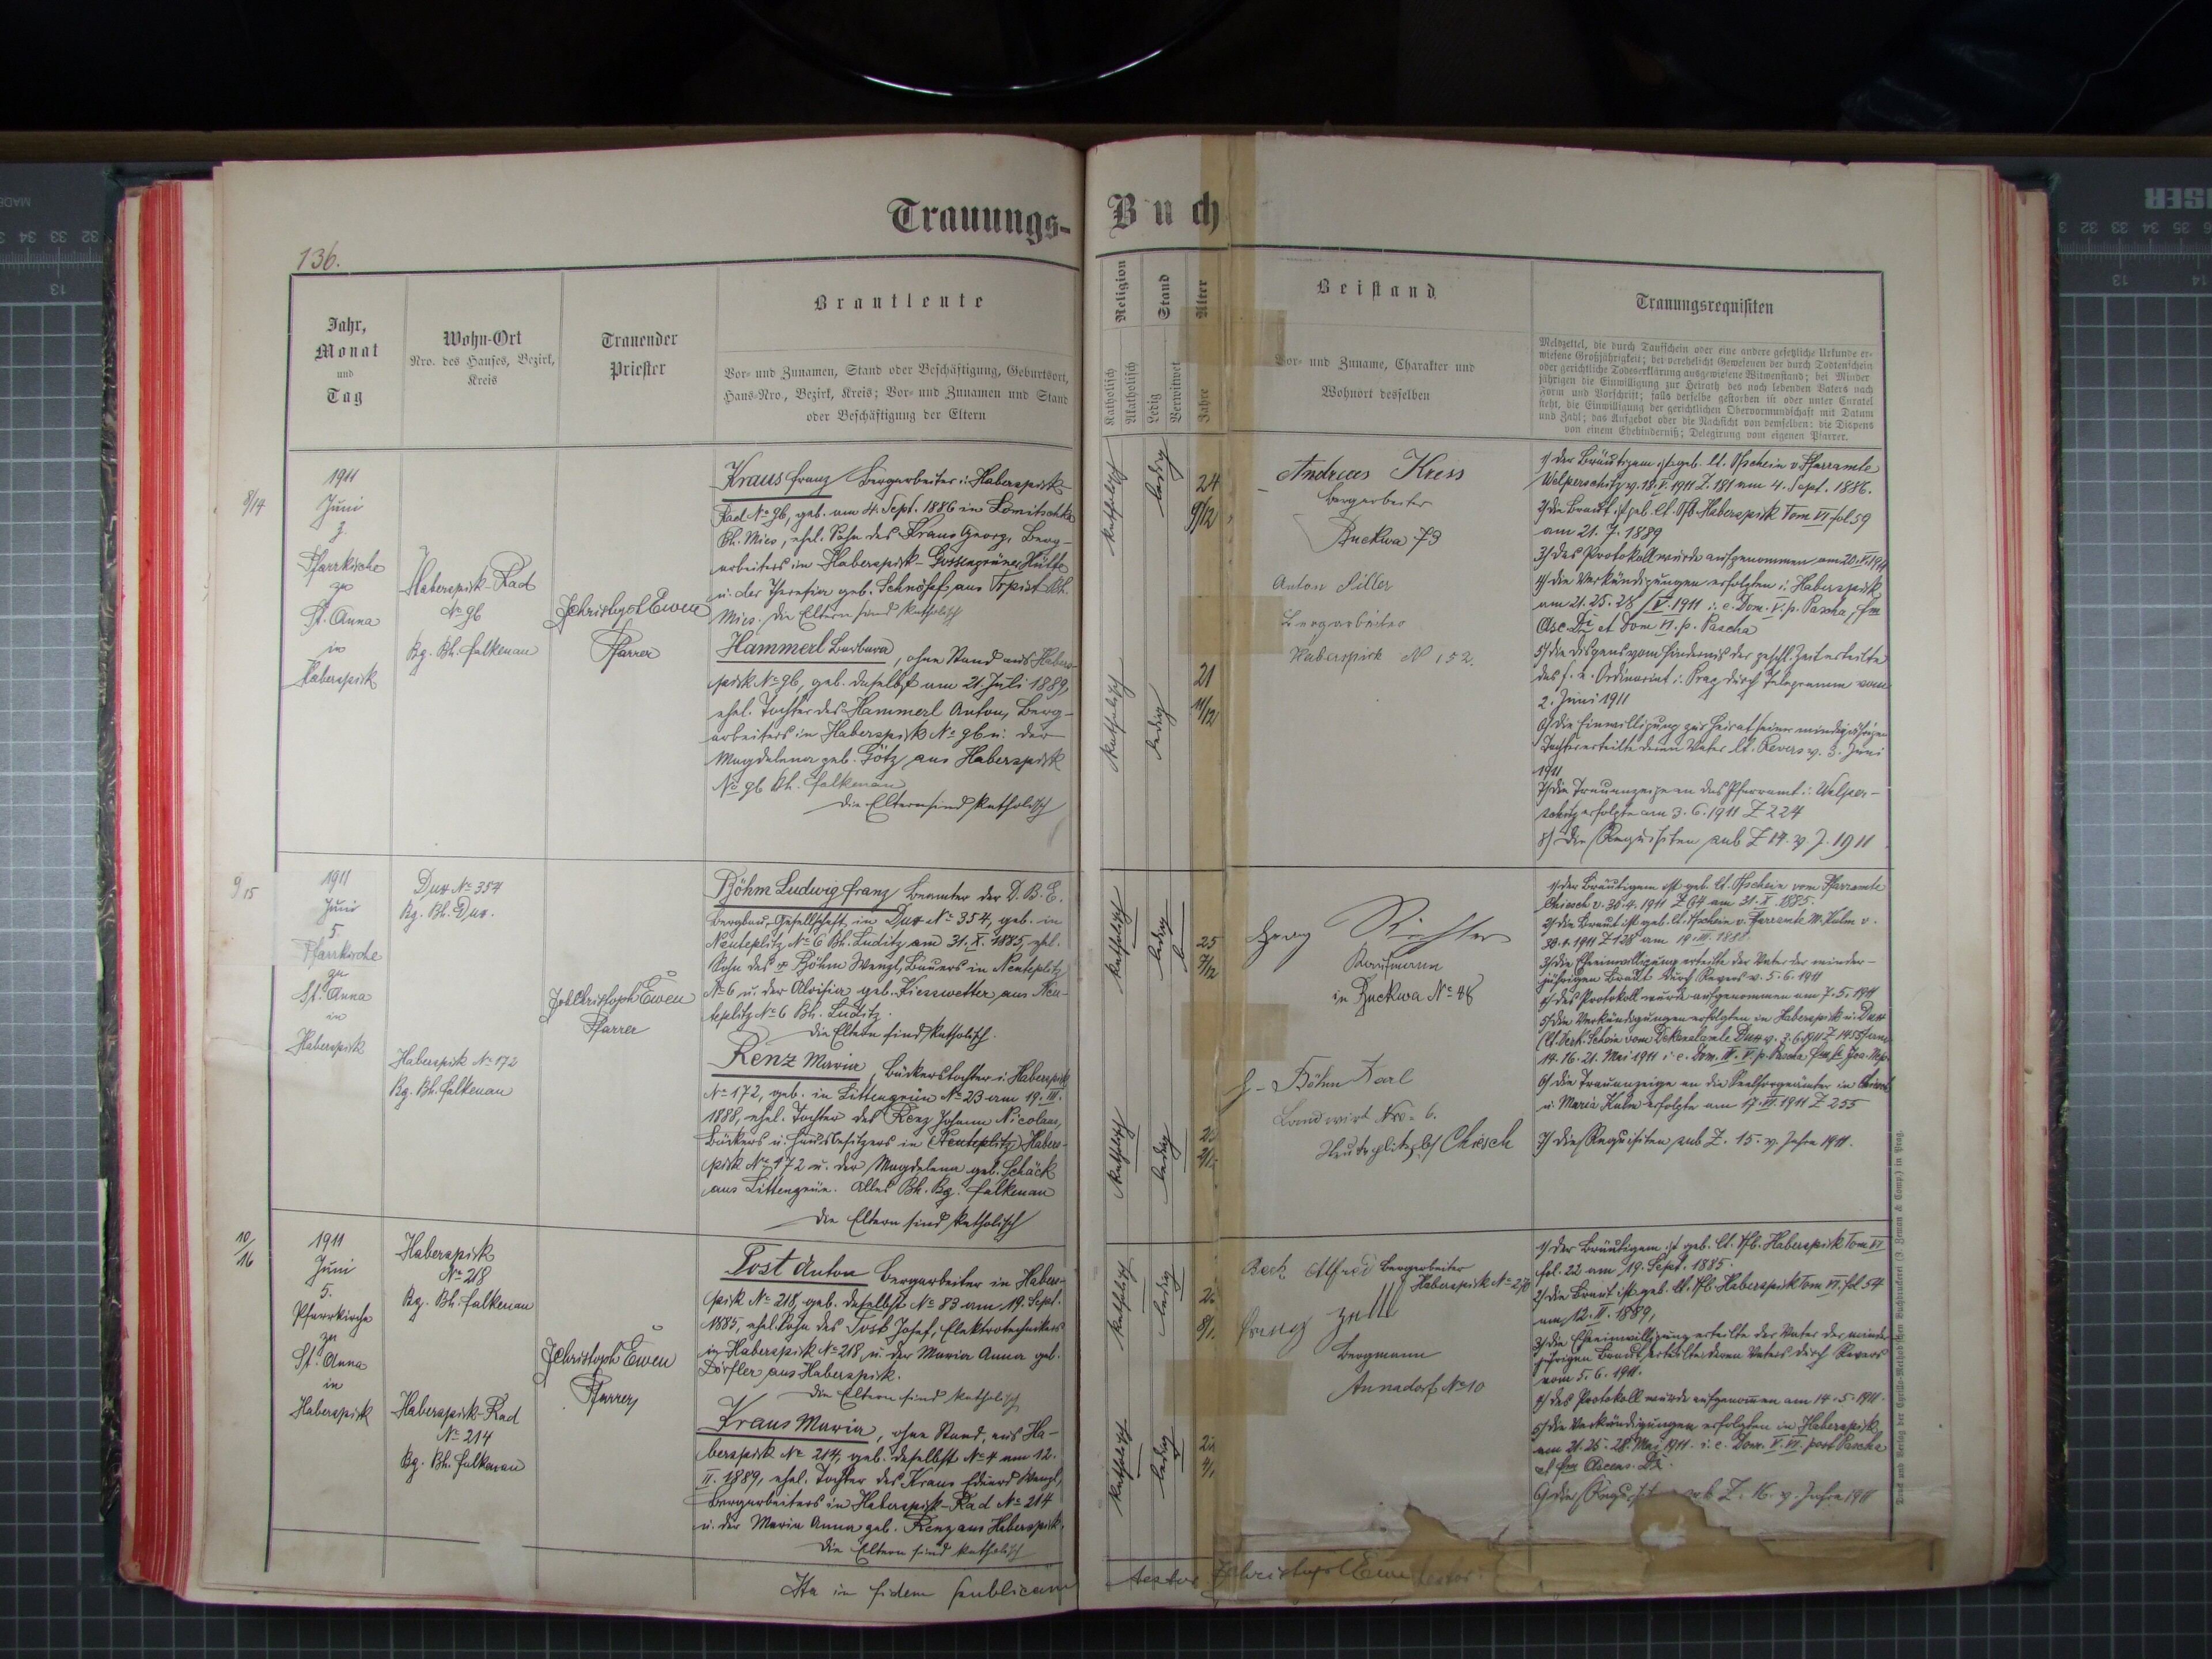 Trauungs-
Buch
136.
Jahr,
Monat
und
Tag
Wohn-Ort
Nro. des Hauses, Bezirk,
Kreis
Trauender
Priester
Brautleute
Vor- und Zunamen, Stand oder Beschäftigung, Geburtsort,
Haus-Nro., Bezirk, Kreis; Vor- und Zunamen und Stand
oder Beschäftigung der Eltern
Religion
Katholisch
Akatholisch
Stand
Ledig
Verwitwet
Alter
Jahre
Beistand
Vor- und Zuname, Charakter und
Wohnort desselben
Trauungsrequisiten
Meldzettel, die durch Taufschein oder eine andere gesetzliche Urkunde er-
wiesene Großjährigkeit; bei verehelicht Gewesenen der durch Todtenschein
oder gerichtliche Todeserklärung ausgewiesene Witwenstand; bei Minder
jährigen die Einwilligung zur Heirath des noch lebenden Vaters nach
Form und Vorschrift; falls derselbe gestorben ist oder unter Curatel
steht, die Einwilligung der gerichtlichen Obervormundschaft mit Datum
und Zahl; das Aufgebot oder die Nachsicht von demselben; die Dispens
von einem Ehehinderniß; Delegirung vom eigenen Pfarrer.
8/14
1911
Juni
3
Pfarrkirche
zu
St. Anna
in
Haberspirk
Haberspirk-Rad
No 96
Bg. Bh. Falkenau
JChristoph Ewen
Pfarrer
Kraus Franz Bergarbeiter i. Haberspirk-
Rad No 96, geb. am 4. Sept. 1886 in Lomitschka
Bh. Mies, ehel. Sohn des Kraus Georg, Berg-
arbeiters in Haberspirk-Gossengrüner Hütte
u. der Theresia geb. Schnöpf aus Trpist Bh.
Mies. Die Eltern sind katholisch
Hammerl Barbara, ohne Stand aus Haber-
spirk No 96, geb. daselbst am 21. Juli 1889,
ehel. Tochter des Hammerl Anton, Berg-
arbeiters in Haberspirk No 96 u. der
Magdalena geb. Götz aus Haberspirk
No 96 Bh. Falkenau
Die Eltern sind katholisch
katholisch
ledig
24
9/12
katholisch
ledig
21
11/12
Andreas Kress
Bergarbeiter
Zuckwa 73
Anton Siller
Bergarbeiter
Haberspirk N 152.
1) Der Bräutigam ist geb. lt. Tfschein v. Pfarramte
Welperschitz v. 18.V.1911 Z. 181 am 4. Sept. 1886.
2) Die Braut ist geb. lt. Tfb. Haberspirk Tom VI fol 59
am 21. 7. 1889
3) Das Protokoll wurde aufgenommen am 20.V.1911
4) Die Verkündigungen erfolgten i. Haberspirk
am 21. 25. 28/V. 1911 i. e. Dom. V. p. Pascha, fm
Asc. Dni et Dom VI. p. Pascha
5) Die Dispens vom Hindernis der geschl. Zeit erteilte
das f. e. Ordinariat i. Prag durch Telegramm vom
2. Juni 1911
6) Die Einwilligung zur Heirat seiner minderjährigen
Tochter erteilte deren Vater lt. Revers v. 3. Juni
1911
7) Die Trauanzeige an das Pfarramt i. Welper-
schitz erfolgte am 3. 6. 1911 Z 224
8) Die Requisiten sub Z 14. v. J. 1911
9/15
1911
Juni
5
Pfarrkirche
zu
St. Anna
in
Haberspirk
Dux No 354
Bg. Bh. Dux.
Haberspirk No 172
Bg. Bh. Falkenau
JohChristoph Ewen
Pfarrer
Böhm Ludwig Franz Beamter der D. B. E.
Bergbau-Gesellschaft in Dux No 354, geb. in
Neuteplitz No 6 Bh. Luditz am 31. X. 1885, ehel.
Sohn des Böhm Wenzl, Bauers in Neuteplitz
No 6 u. der Aloisia geb. Kiesswetter aus Neu-
teplitz No 6 Bh. Luditz.
Die Eltern sind katholisch.
Renz Maria, Bäckerstochter i. Haberspirk
No 172, geb. in Littengrün No 23 am 19. III.
1888, ehel. Tochter des Renz Johann Nicolaus,
Bäckers u. Hausbesitzers in Neuteplitz Haber-
spirk No 172 u. der Magdalena geb. Schäck
aus Littengrün. Alles Bh. Bg. Falkenau
Die Eltern sind katholisch
katholisch
ledig
25
7/12
katholisch
ledig
Georg Richter
Kaufmann
in Zuckwa No 48
Böhm Karl
Landwirt Nro. 6.
Neuteplitz Chiesch
1) Der Bräutigam ist geb. lt. Tfschein vom Pfarramte
Chiesch v. 30. 4. 1911 Z 64 am 31. X 1885.
2) Die Braut ist geb. lt. Tfschein v. Pfarramte M. Kulm v.
30. 4. 1911 Z 128 am 19. III. 1888
3) Die Eheeinwilligung erteilte der Vater der minder-
jährigen Braut durch Revers v. 5. 6. 1911
4) Das Protokoll wurde aufgenommen am 7. 5. 1911
5) Die Verkündigungen erfolgten in Haberspirk u. Dux
(lt. Verk. Schein vom Dekanalamte Dux v. 3. 6. 1911 am
14. 16. 21. Mai 1911 i. e. Dom. IV. V. p. Pascha fm St. Joa. Nep.
6) Die Trauanzeige an die Seelsorgeämter in Chiesch
u. Maria Kulm erfolgte am 17. VI. 1911 Z 255
7) Die Requisiten sub Z. 15. v. Jahre 1911.
10/16
1911
Juni
5.
Pfarrkirche
zu
St. Anna
in
Haberspirk
Haberspirk
No 218
Bg. Bh. Falkenau
Haberspirk-Rad
No 214
Bg. Bh. Falkenau
JChristoph Ewen
Pfarrer
Tost Anton Bergarbeiter in Haber-
spirk No 218, geb. daselbst No 83 am 19. Sept.
1885, ehel. Sohn des Tost Josef, Elektrotechnikers
in Haberspirk No 218 u. der Maria Anna geb.
Dörfler aus Haberspirk.
Die Eltern sind katholisch
Kraus Maria, ohne Stand, aus Ha-
berspirk No 214, geb. daselbst No 4 am 12.
II. 1889, ehel. Tochter des Kraus Eduard Wenzl,
Bergarbeiters in Haberspirk-Rad No 214
u. der Maria Anna geb. Renz aus Haberspirk.
Die Eltern sind katholisch
katholisch
ledig
katholisch
ledig
Beck Alfred Bergarbeiter
Haberspirk No 270
Bergmann
Annadorf No 10
1) Der Bräutigam ist geb. lt. Tfb. Haberspirk Tom VI
fol. 22 am 19. Sept. 1885.
2) Die Braut ist geb. lt. Tfb Haberspirk Tom VI. fol 54
am 12. II. 1889,
3) Die Eheeinwilligung erteilte der Vater der minder-
jährigen Braut erteilte deren Vaters durch Revers
vom 5. 6. 1911.
4) Das Protokoll wurde aufgenommen am 14. 5. 1911.
5) Die Verkündigungen erfolgten in Haberspirk
am 21. 25. 28. Mai 1911. i. e. Dom. V. VI. post Pascha
et fm Ascens. Dni.
6) Die Z. 16. v. Jahre 1911
Ita in fidem publicam
testor JChristoph Ewen testor
Druck und Verlag der Cyrillo-Method'schen Buchdruckerei (J. Zeman & Comp.) in Prag.